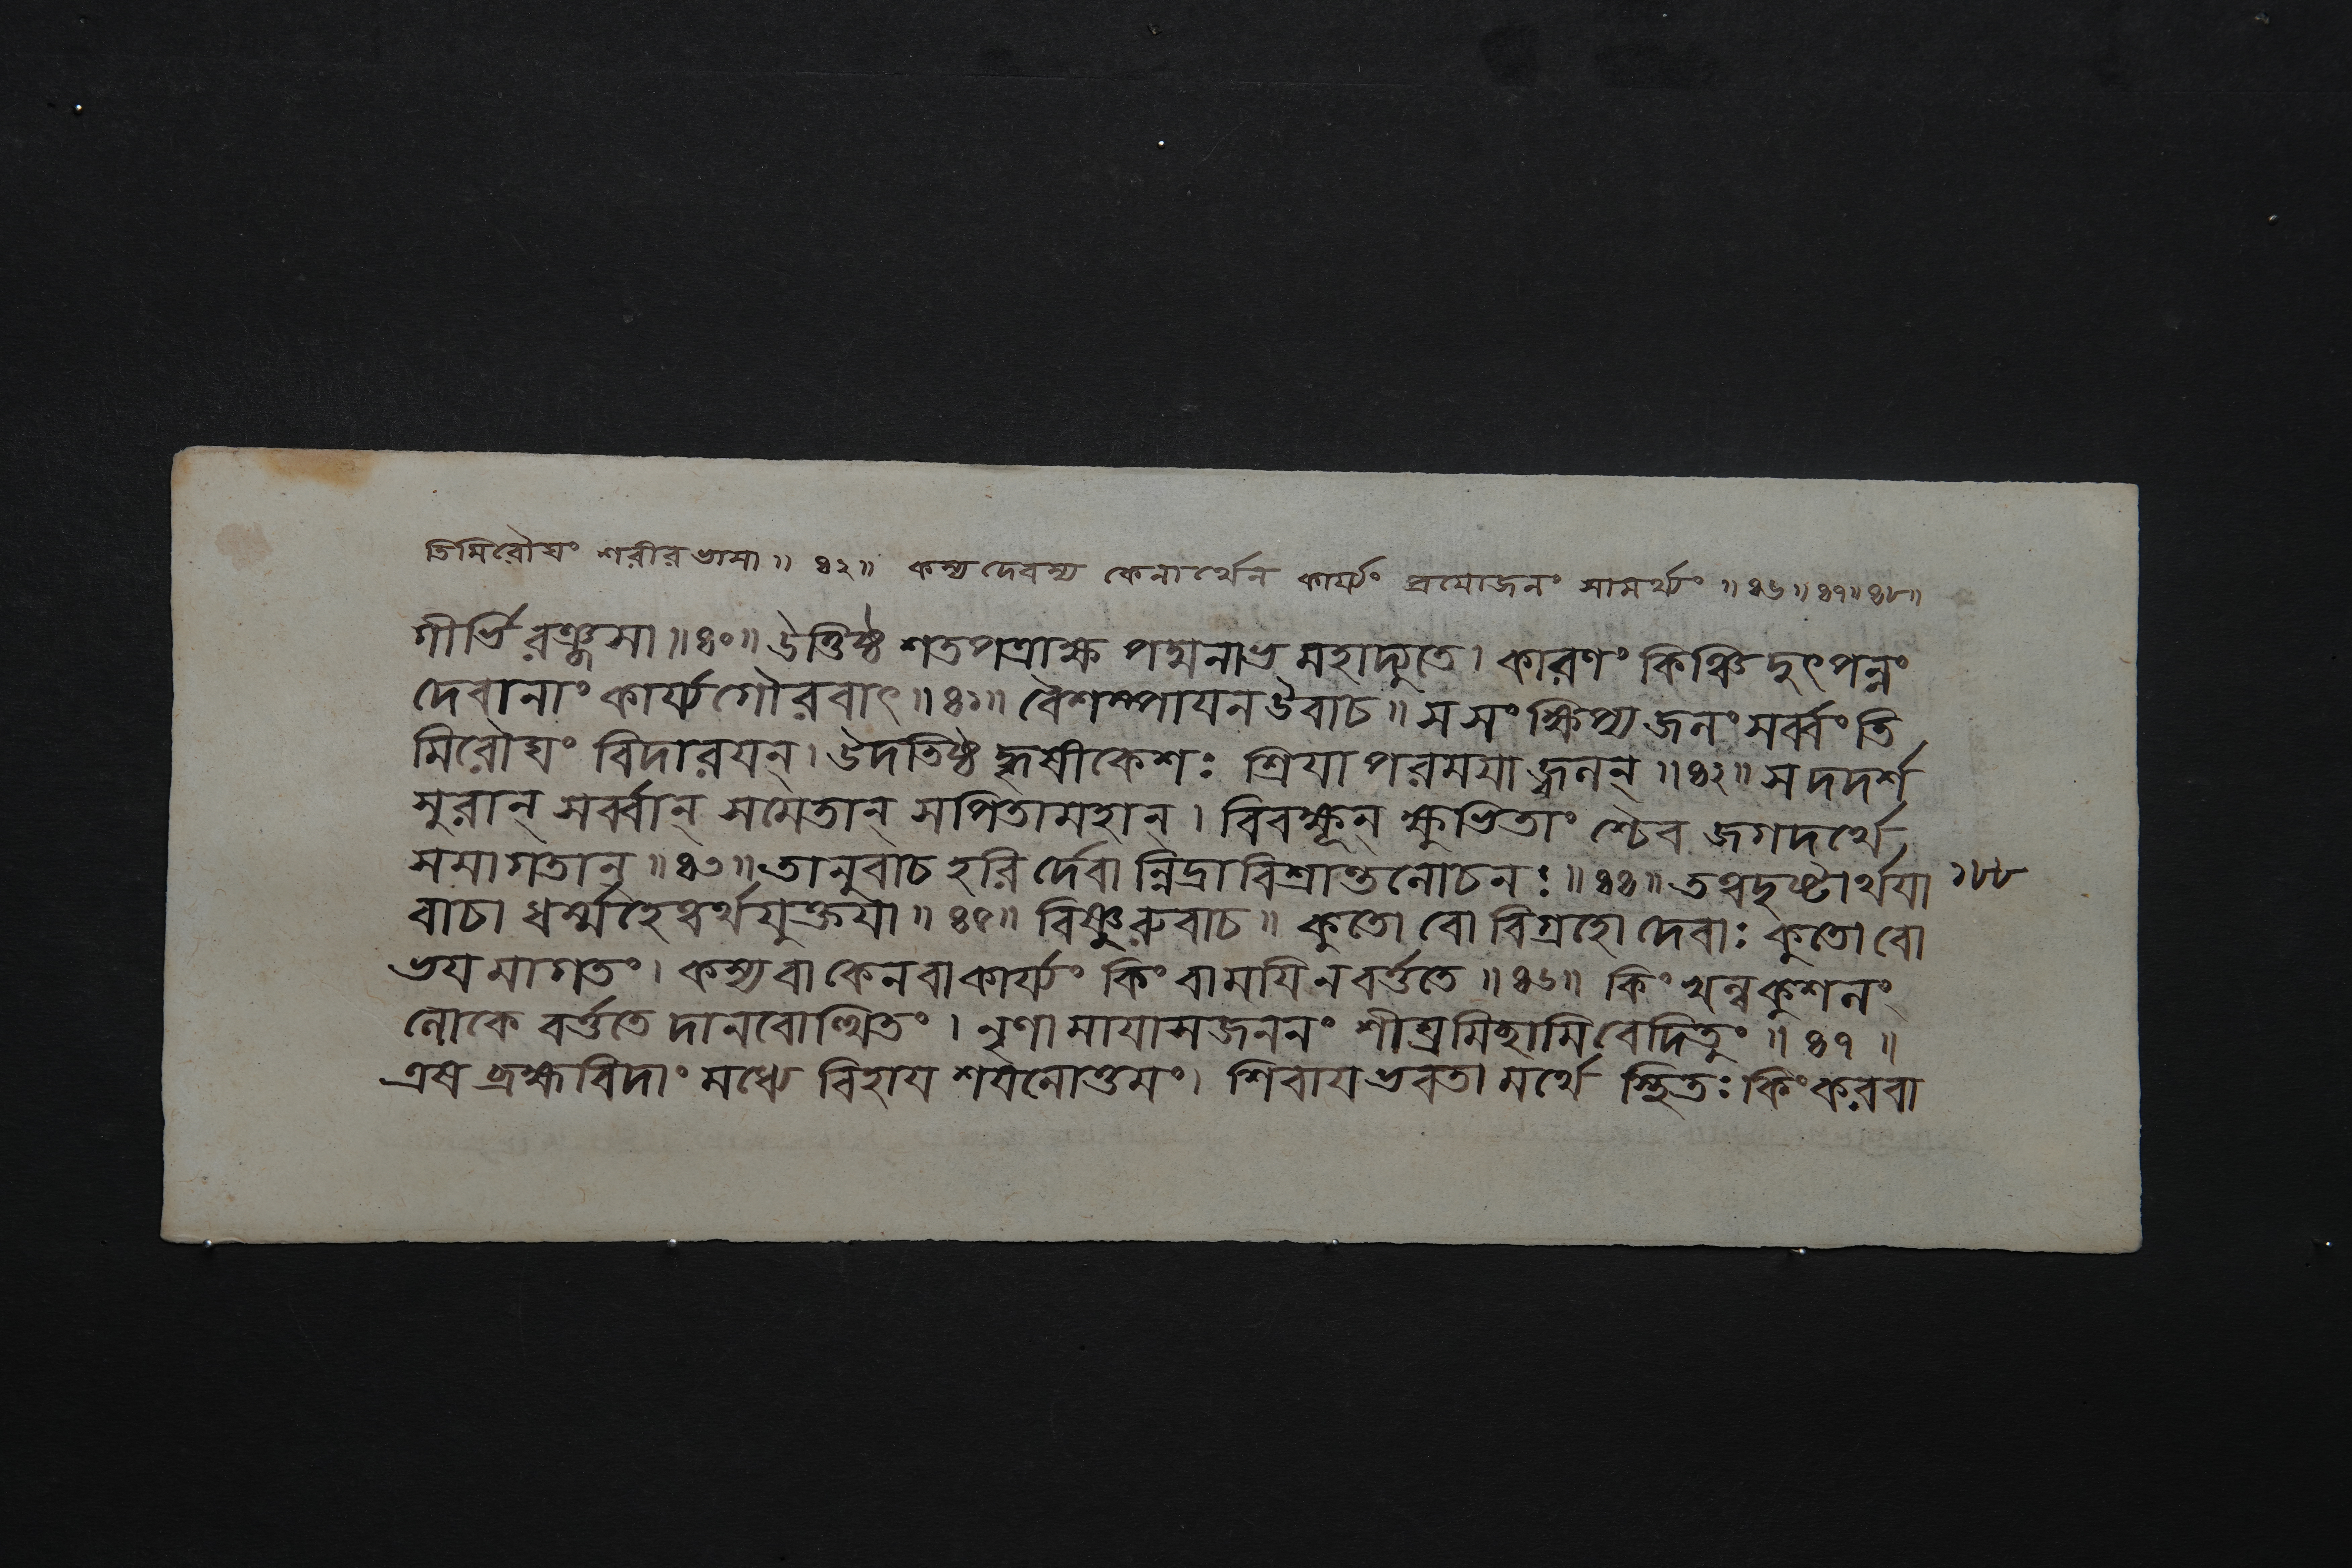 তিমিরৌঘং শরীরভাসা॥ ৪২॥ কস্য দেবস্য কেনার্থেন কার্য্যং প্রয়োজনং সামর্থ্যং ॥৪৬॥৪৭॥৪৮॥
গীর্ভিরঞ্জসা॥৪০॥ উত্তিষ্ঠ শতপত্রাক্ষ পদ্মনাভ মহাদ্যুতে। কারণং কিঞ্চিদুৎপন্নং
দেবানাং কার্য্যগৌরবাৎ॥৪১॥ বৈশম্পায়ন উবাচ॥ স সংক্ষিপ্য জলং সর্ব্বং তি
মিরৌঘং বিদারয়ন্। উদতিষ্ঠ হৃষীকেশঃ শ্রিয়া পরময়া জ্বলন্॥৪২॥ স দদর্শ
সুরান্ সর্ব্বান্ সমেতান্ সপিতামহান্। বিবক্ষূন্ ক্ষুভিতাংশ্চৈব জগদর্থে
সমাগতান্॥৪৩॥ তানুবাচ হরির্দেবান্নিদ্রাবিশ্রান্তলোচনঃ॥৪৪॥ তত্ত্বদৃষ্টার্থয়া ১৮৮
বাচা ধর্ম্মহেত্বর্থযুক্তয়া॥৪৫॥ বিষ্ণুরুবাচ॥ কুতো বো বিগ্রহো দেবাঃ কুতো বো
ভয়মাগতং। কস্য বা কেন বা কার্য্যং কিং বা ময়ি ন বর্ত্ততে॥৪৬॥ কিং খল্বকুশলং
লোকে বর্ত্ততে দানবোত্থিতং। নৃণামায়াসজননং শীঘ্রমিচ্ছামি বেদিতুং॥৪৭॥
এষ ব্রহ্মবিদাং মধ্যে বিহায় শয়নোত্তমং। শিবায় ভবতামর্থে স্থিতঃ কিং করবা